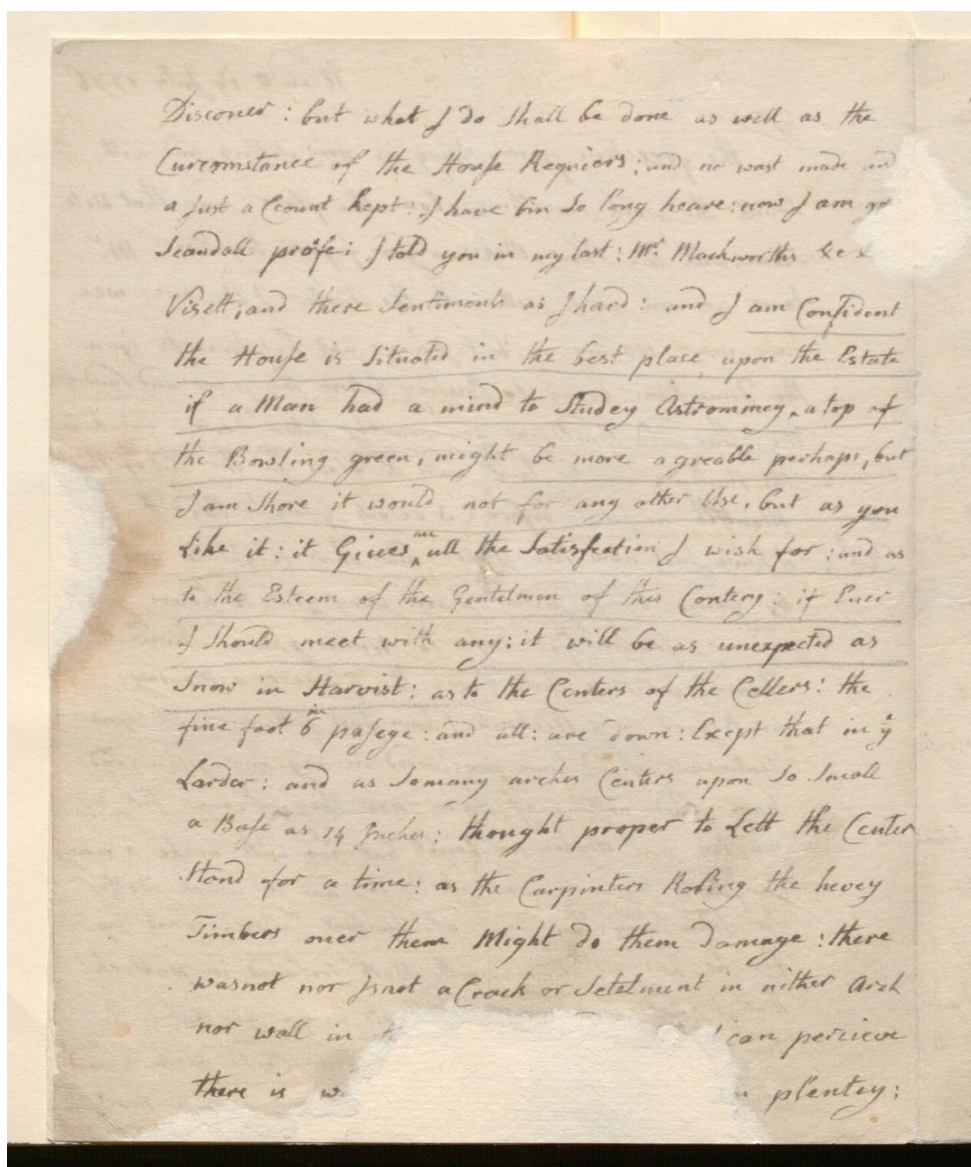 Discouer : but what I do Shall be done as well as the
Curcomstance of the House Requiers : and no wast made an
a just a Ccount kept : I have bin So long heare : now I am
Scandall profe : I told you in my last : Mr. Mackworths &c &
Visett ; and there Sentiments as I hard : and I am Confident
the House is Situated in the best place upon the Estate
if a Man had a mind to Studey Astrominey, a top of
the Bowling green, might be more agreable perhaps, but
I am Shore it would not for any other Use, but as you
Like it : it Gives me all the Satisfection I wish for : and as
to the Esteem of the Gentelmen of this Contery : if Euer
I Should meet with any : it will be as unexpected as
Snow in Harvist : as to the Centers of the Cellers : the
five foot 6 in pasege : and all : are down : Exept that in ye
Larder : and as Somany arches Centers upon So Small
a Base as 14 Inches : thought proper to Lett the Center
Stand for a time : as the Carpinters Roling the hevey
Timbers over them Might do them damage : there
wasnot nor Isnot a Crack or Setelment in nither Arch
nor wall in can percieve
there is plentey :